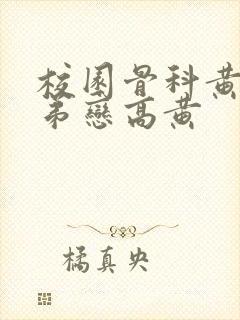 校園骨科黃
弟戀高黃
橘真央